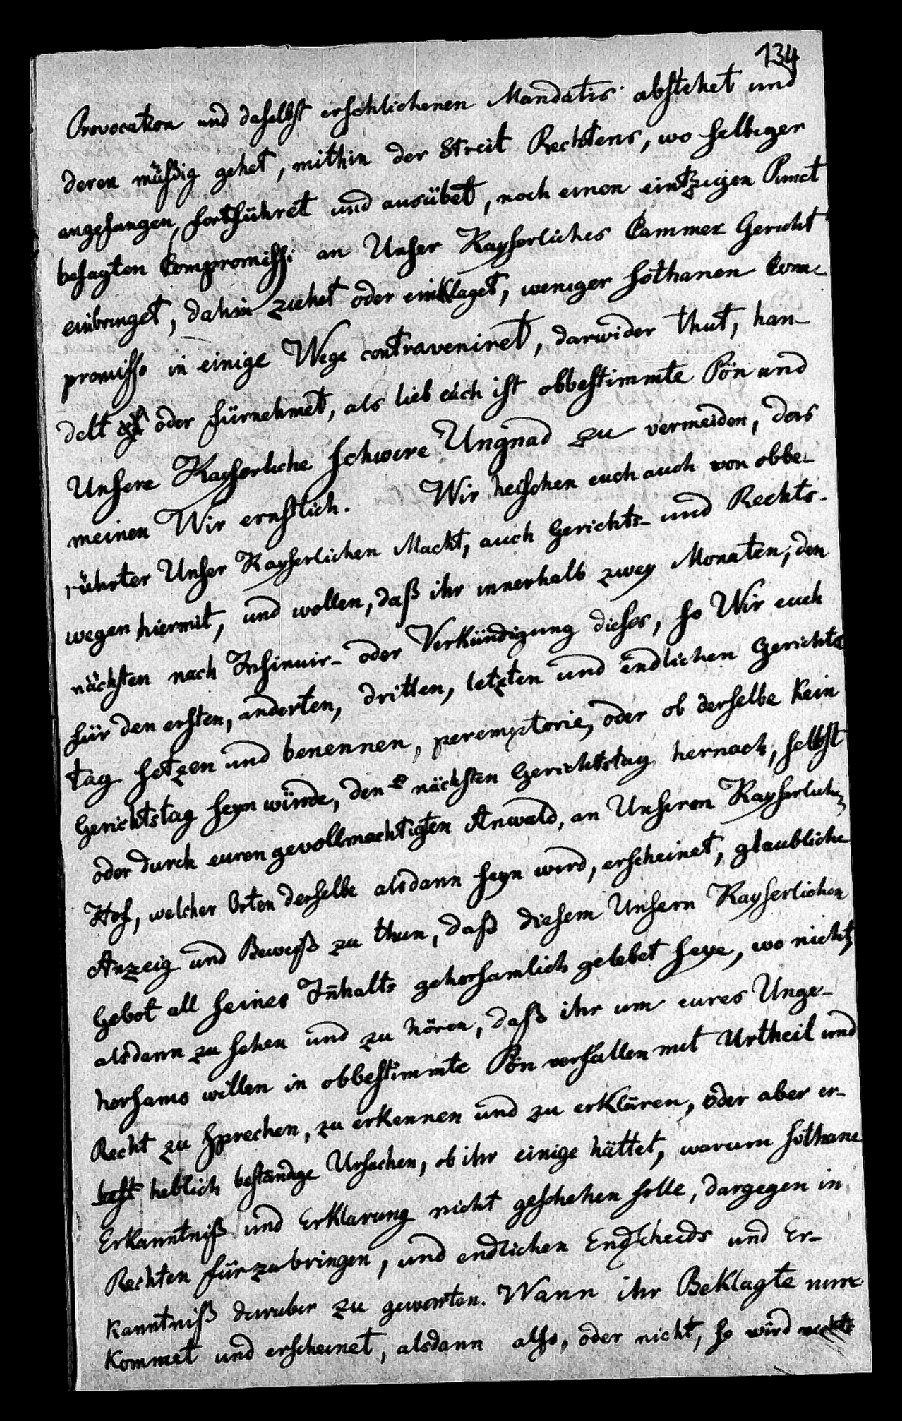 134
Provocation und daselbst erschlichenen Mandatis abstehet und
deren müßig gehet, mithin der Streit Rechtens, wo selbiger
angefangen, fortführet und ausübet, noch einen eintzigen Punct
besagten Compromissi an Unser Kayserliches Cammer Gericht
einbringet, dahin ziehet oder einklaget, weniger sothanen Com-
promisso in einige Wege contraveniret, darwider thut, han-
delt oder fürnehmet, als lieb euch ist obbestimmte Pön und
Unsere Kayserliche schwere Ungnad zu vermeiden, das
meinen Wir ernstlich. Wir heischen euch auch von obbe-
rührter Unser Kayserlichen Macht, auch Gerichts- und Rechts-
wegen hiermit, und wollen, daß ihr innerhalb zwey Monaten, den
nächsten nach Insinuir- oder Verkündigung dieses, so Wir euch
für den ersten, anderten, dritten, letzten und endlichen Gerichts
tag setzen und benennen, peremptorie, oder ob derselbe kein
Gerichtstag seyn würde, den nächsten Gerichtstag hernach, selbst
oder durch euren gevollmachtigten Anwald, an Unseren Kayserlichen
Hof, welcher Orten derselbe alsdann seyn wird, erscheinet, glaubliche
Anzeig und Beweiß zu thun, daß diesem Unsern Kayserlichen
Gebot all seines Inhalts gehorsamlich gelebet seye, wo nicht,
alsdann zu sehen und zu hören, daß ihr um eures Unge-
horsams willen in obbestimmte Pön verfallen mit Urtheil und
Recht zu sprechen, zu erkennen und zu erklären, oder aber er-
heblich beständge Ursachen, ob ihr einige hättet, warum sothane
Erkanntniß und Erklarung nicht geschehen solle, dargegen in
Rechten fürzubringen, und endlichen Endscheids und Er-
kanntniß daruber zu gewarten. Wann ihr Beklagte nun
kommet und erscheinet, alsdann also, oder nicht, so wird